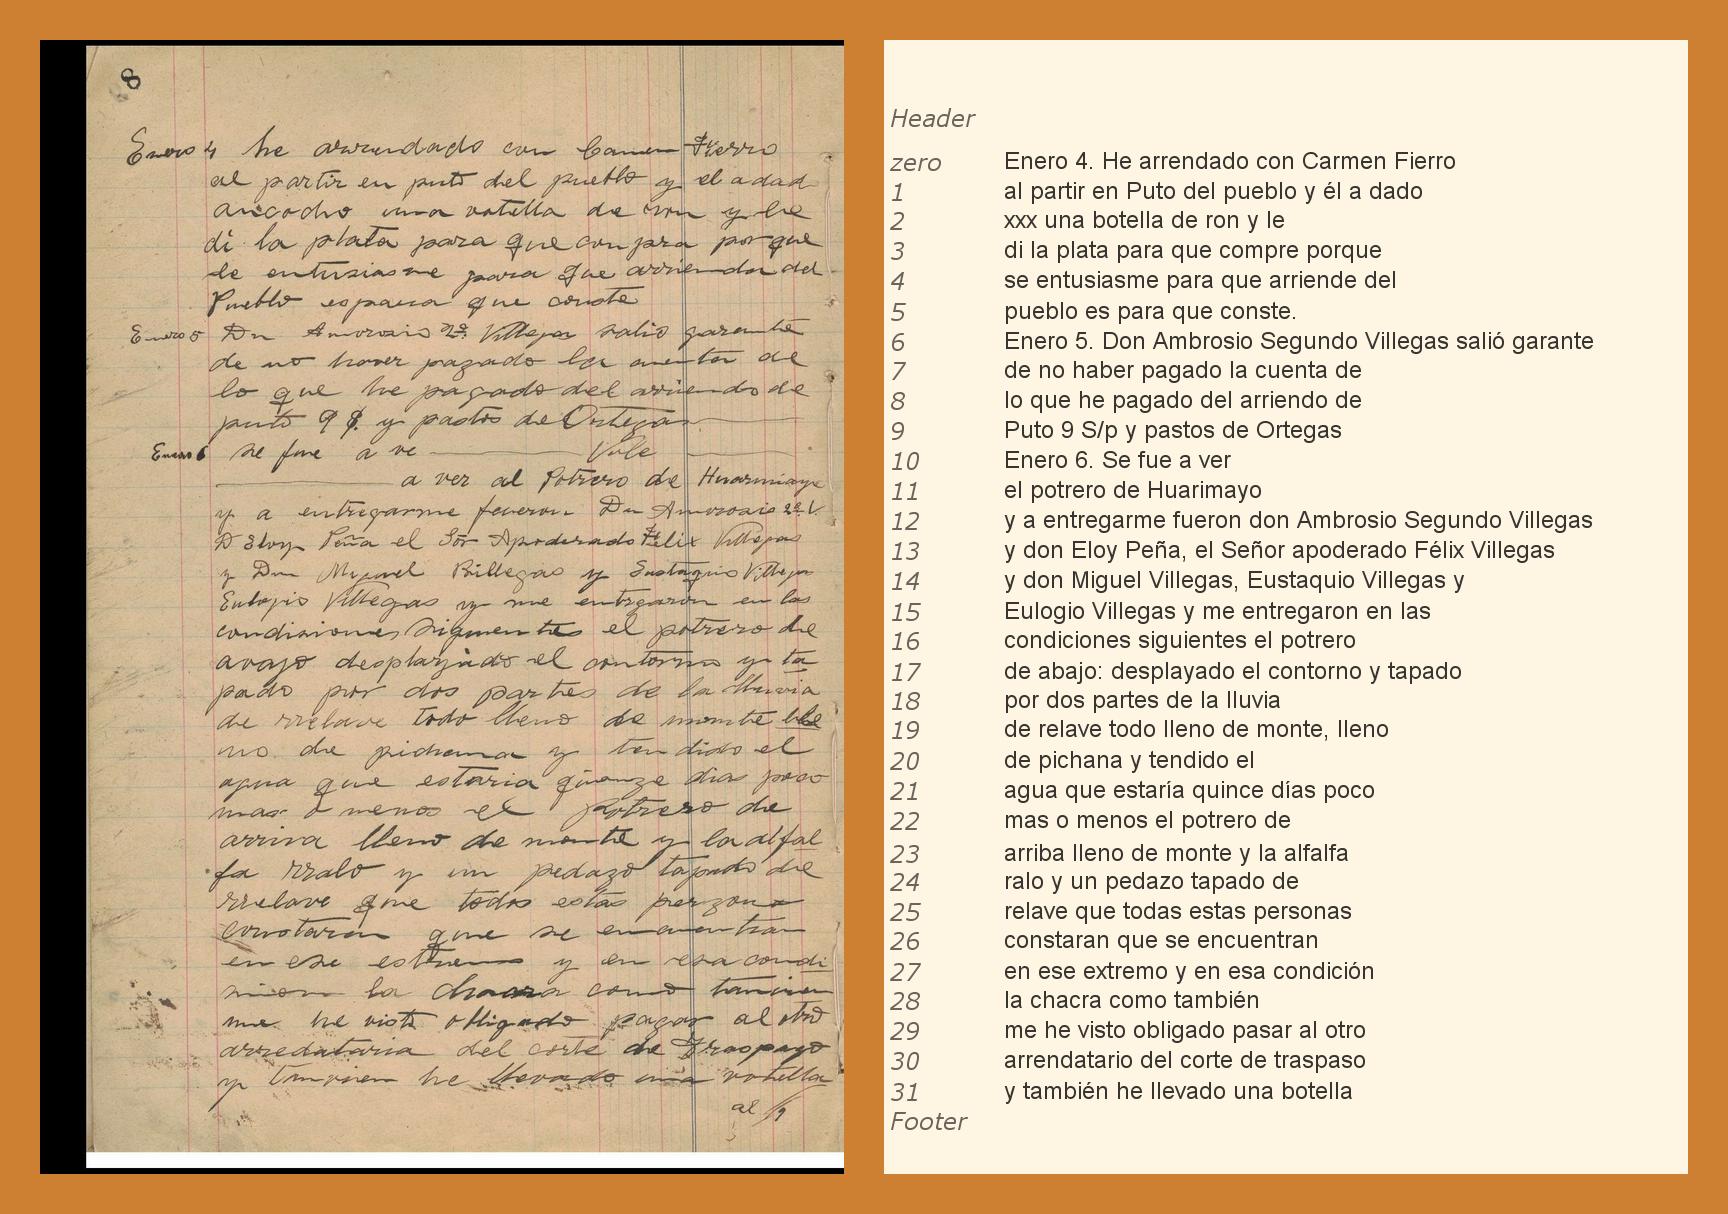 8
Enero 4 he arrendado con Carmen Fierro
al partir en puto del pueblo y el a dad
una votella de ron y le
di la plata para que compra porque
se entusiasme para que arrienda del
Pueblo es para que conste
Enero 5 Dn Amrosio 2º Villegas salio garante
de no haver pagado la cuenta de
lo que he pagado del arriendo de
puto 9 $ y pastos de Ortegas
Enero 6 se fue a ve Vale
a ver al Potrero de Huarimayo
y a entregarme fueron Dn Amrosio 2º V.
D Eloy Peña el Sor Apoderado Felix Villegas
y Dn Miguel Billegas y Eustaquio Villegas
Eulogio Villegas y me entregaron en las
condisiones siguientes el potrero de
avajo desplayado el contorno y ta
pado por dos partes de la lluvia
de rrelave todo lleno de monte lle
no de pichana y tendido el
agua que estaria quenze dias poco
mas o menos el Potrero de
arriva lleno de monte y la alfal
fa rralo y un pedazo tapado de
rrelave que todos estas perzona
constaran que se encuentran
en ese estremo y en esa condi
sion la chacra como tamvien
me he visto obligado pagar al otro
arredataria del corte de traspazo
y tamvien he llevado una votella
al
Header
zero Enero 4. He arrendado con Carmen Fierro
1 al partir en Puto del pueblo y él a dado
2 xxx una botella de ron y le
3 di la plata para que compre porque
4 se entusiasme para que arriende del
5 pueblo es para que conste.
6 Enero 5. Don Ambrosio Segundo Villegas salió garante
7 de no haber pagado la cuenta de
8 lo que he pagado del arriendo de
9 Puto 9 S/p y pastos de Ortegas
10 Enero 6. Se fue a ver
11 el potrero de Huarimayo
12 y a entregarme fueron don Ambrosio Segundo Villegas
13 y don Eloy Peña, el Señor apoderado Félix Villegas
14 y don Miguel Villegas, Eustaquio Villegas y
15 Eulogio Villegas y me entregaron en las
16 condiciones siguientes el potrero
17 de abajo: desplayado el contorno y tapado
18 por dos partes de la lluvia
19 de relave todo lleno de monte, lleno
20 de pichana y tendido el
21 agua que estaría quince días poco
22 mas o menos el potrero de
23 arriba lleno de monte y la alfalfa
24 ralo y un pedazo tapado de
25 relave que todas estas personas
26 constaran que se encuentran
27 en ese extremo y en esa condición
28 la chacra como también
29 me he visto obligado pasar al otro
30 arrendatario del corte de traspaso
31 y también he llevado una botella
Footer